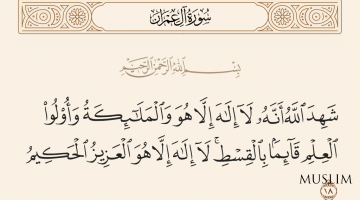 سُورَةُ آلِ عِمْرَان
بِسْمِ اللَّهِ الرَّحْمَٰنِ الرَّحِيمِ
شَهِدَ ٱللَّهُ أَنَّهُۥ لَآ إِلَٰهَ إِلَّا هُوَ وَٱلْمَلَٰٓئِكَةُ وَأُو۟لُوا۟
ٱلْعِلْمِ قَآئِمًۢا بِٱلْقِسْطِ ۚ لَآ إِلَٰهَ إِلَّا هُوَ ٱلْعَزِيزُ ٱلْحَكِيمُ
MUSLIM
١٨